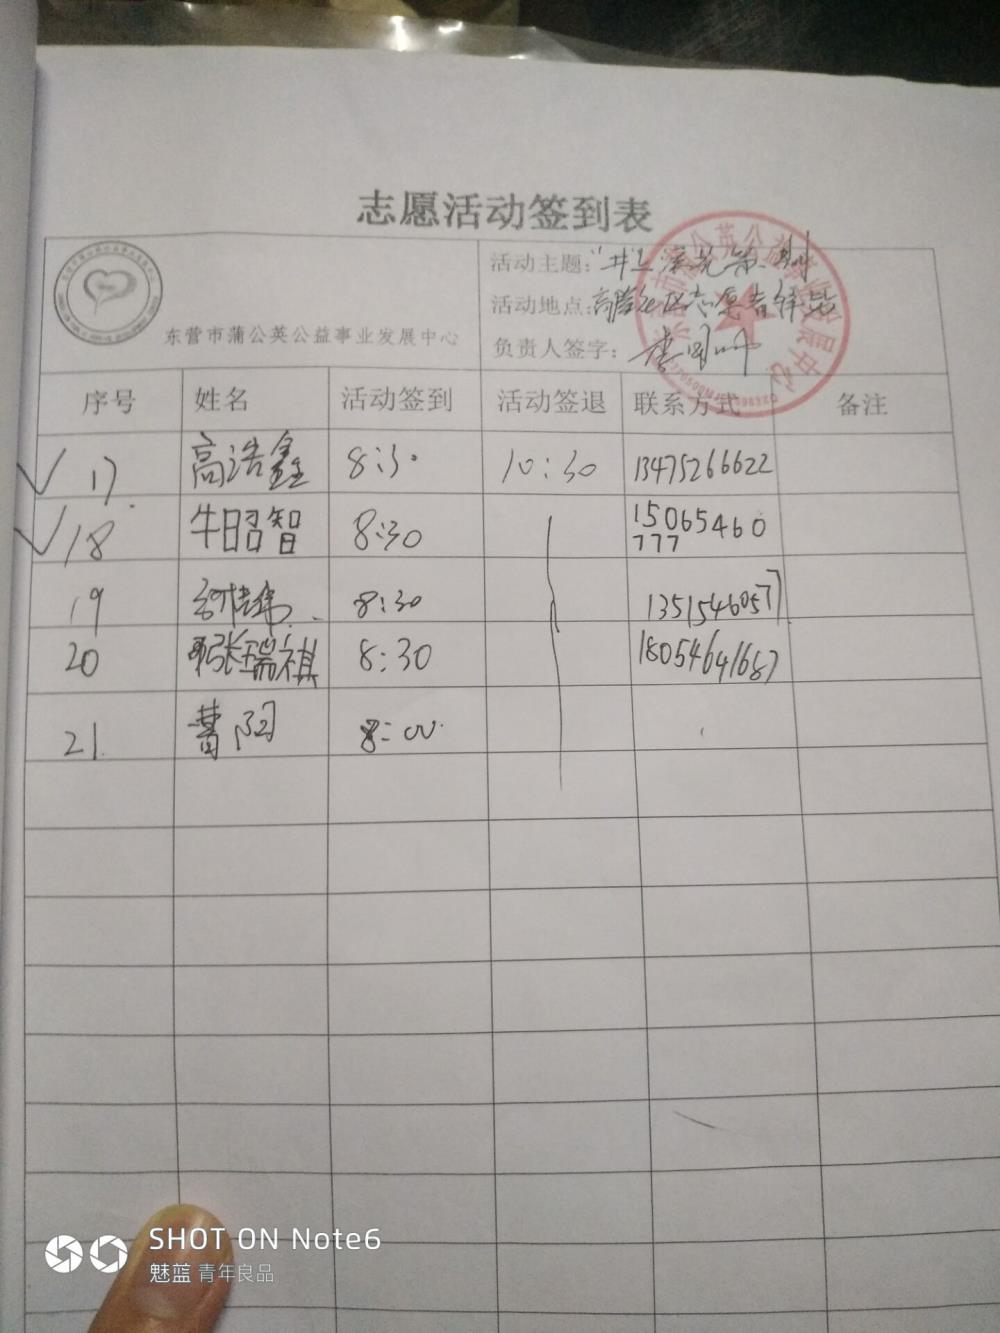 志愿活动签到表
活动主题:
活动地点: 志愿者
东营市蒲公英公益事业发展中心
负责人签字:
序号 姓名 活动签到 活动签退 联系方式 备注
17 高浩鑫 8:30 10:30 13475266622
18 牛昭智 8:30 15065460
777
19 8:30 13515460577
20 张瑞祺 8:30 18054641687
21 阳 8:00
SHOT ON Note6
魅蓝 青年良品